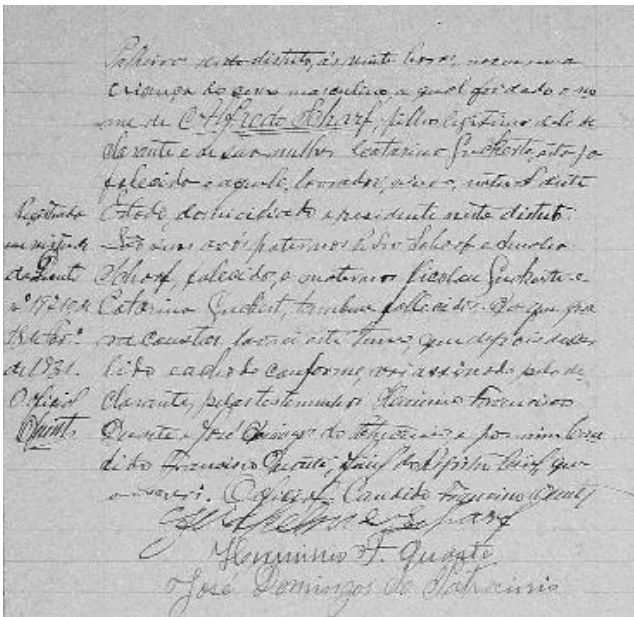 Palheiros deste distrito, ás vinte horas, nasceu uma
criança do sexo masculino a qual foi dado o no
me de Alfredo Scharf, filho legitimo dele de
clarante e de sua mulher Catarina esta ja
falecida e aquele, lavrador, viuvo, natural deste
Estado, domiciliado e residente neste distrito.
São seus avós paternos Pedro Scharf e Amelia
Scharf, falecido, e maternos Nicolau e
Catarina tambem fallecidos. Do que pa
ra constar lavrei este termo, que depois de
lido e achado conforme, vai assinado pelo de
clarante, pelas testemunhas Herminio Francisco
Duarte e José Domingos do Patrocinio e por mim Can
dido Francisco Duarte, do Registro Civil, que
o escrevi. O oficial: Candido Francisco Duarte
Guilherme Scharf
Herminio F. Duarte
José Domingos do Patrocinio
Registrado
em virtude
do
nº 19710 de
18 de
de 1931.
O oficial
Duarte